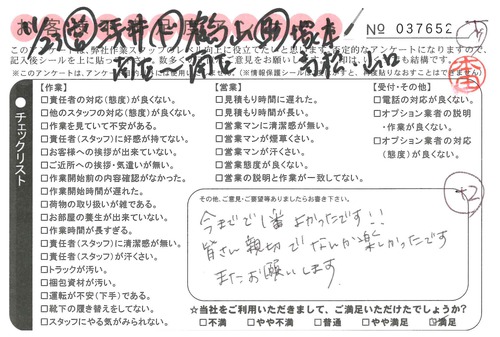 No 037652
このアンケートは、弊社作業スタッフのレベル向上に役立てたいと思います。否定的なアンケートになりますので、
チェックリスト
【作業】
□責任者の対応(態度)が良くない。
□他のスタッフの対応(態度)が良くない。
□作業を見ていて不安がある。
□責任者(スタッフ)に好感が持てない。
□お客様への挨拶が出来ていない。
□ご近所への挨拶・気遣いが無い。
□作業開始前の内容確認がなかった。
□作業開始時間が遅れた。
□荷物の取り扱いが雑である。
□お部屋の養生が出来ていない。
□作業時間が長すぎる。
□責任者(スタッフ)に清潔感が無い。
□責任者(スタッフ)が汗くさい。
□トラックが汚い。
□梱包資材が汚い。
□運転が不安(下手)である。
□靴下の履き替えをしてない。
□スタッフにやる気がみられない。
【営業】
□見積もり時間に遅れた。
□見積もり時間が長い。
□営業マンに清潔感が無い。
□営業マンが煙草くさい。
□営業マンが汗くさい。
□営業態度が良くない。
□営業の説明と作業が一致してない。
【受付・その他】
□電話の対応が良くない。
□オプション業者の説明
・作業が良くない。
□オプション業者の対応
(態度)が良くない。
その他、ご意見・ご要望等ありましたらお書き下さい。
今までで1番よかったです!!
皆さん親切でなんか楽しかったです
またお願いします
+2
☆当社をご利用いただきまして、ご満足いただけたでしょうか?
□不満 □やや不満 □普通 □やや満足 ☑満足